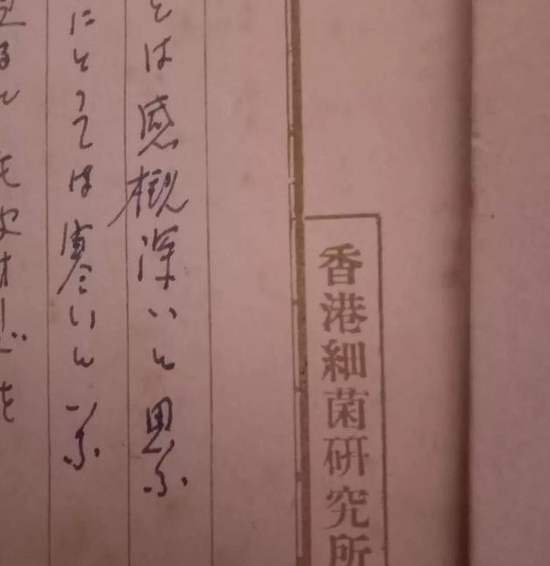 香港細菌研究所
とは感概深いと思ふ
にとつては寒いと云ふ